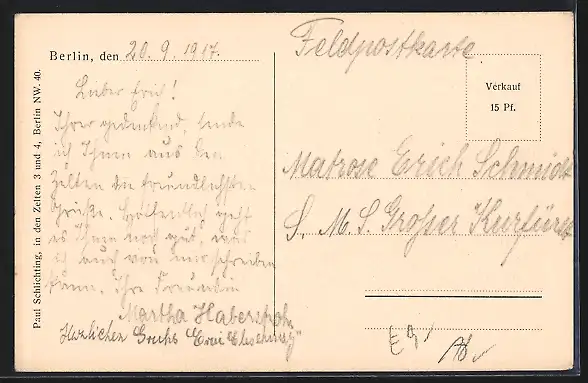 Berlin, den 20. 9. 1917.
Lieber Erich!
Ihrer gedenkend, sende
ich Ihnen aus den
Zelten die freundlichsten
Grüße. Hoffentlich geht
es Ihnen noch gut, was
ich auch von mir schreiben
kann. Ihre Freundin
Martha
Herzlichen Gruß
Feldpostkarte
Verkauf
15 Pf.
Matrose Erich Schmidt
S. M. S. Grosser Kurfürst
Paul Schlichting, in den Zelten 3 und 4, Berlin NW. 40.